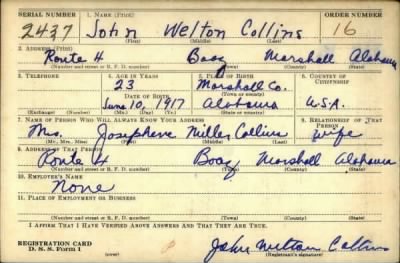 SERIAL NUMBER 1. NAME (Print) ORDER NUMBER
2437 John Welton Collins 16
(First) (Middle) (Last)
2. ADDRESS (Print)
Route 4 Boaz Marshall Alabama
(Number and street or R. F. D. number) (Town) (County) (State)
3. TELEPHONE 4. AGE IN YEARS 5. PLACE OF BIRTH 6. COUNTRY OF CITIZENSHIP
23 Marshall Co.
DATE OF BIRTH (Town or county)
June 10, 1917 Alabama U.S.A.
(Exchange) (Number) (Mo.) (Day) (Yr.) (State or country)
7. NAME OF PERSON WHO WILL ALWAYS KNOW YOUR ADDRESS 8. RELATIONSHIP OF THAT PERSON
Mrs. Josephene Miller Collins wife
(Mr., Mrs., Miss) (First) (Middle) (Last)
9. ADDRESS OF THAT PERSON
Route 4 Boaz Marshall Alabama
(Number and street or R. F. D. number) (Town) (County) (State)
10. EMPLOYER'S NAME
None
11. PLACE OF EMPLOYMENT OR BUSINESS
(Number and street or R. F. D. number) (Town) (County) (State)
I AFFIRM THAT I HAVE VERIFIED ABOVE ANSWERS AND THAT THEY ARE TRUE.
REGISTRATION CARD
D. S. S. Form 1 John Welton Collins
(Registrant's signature)